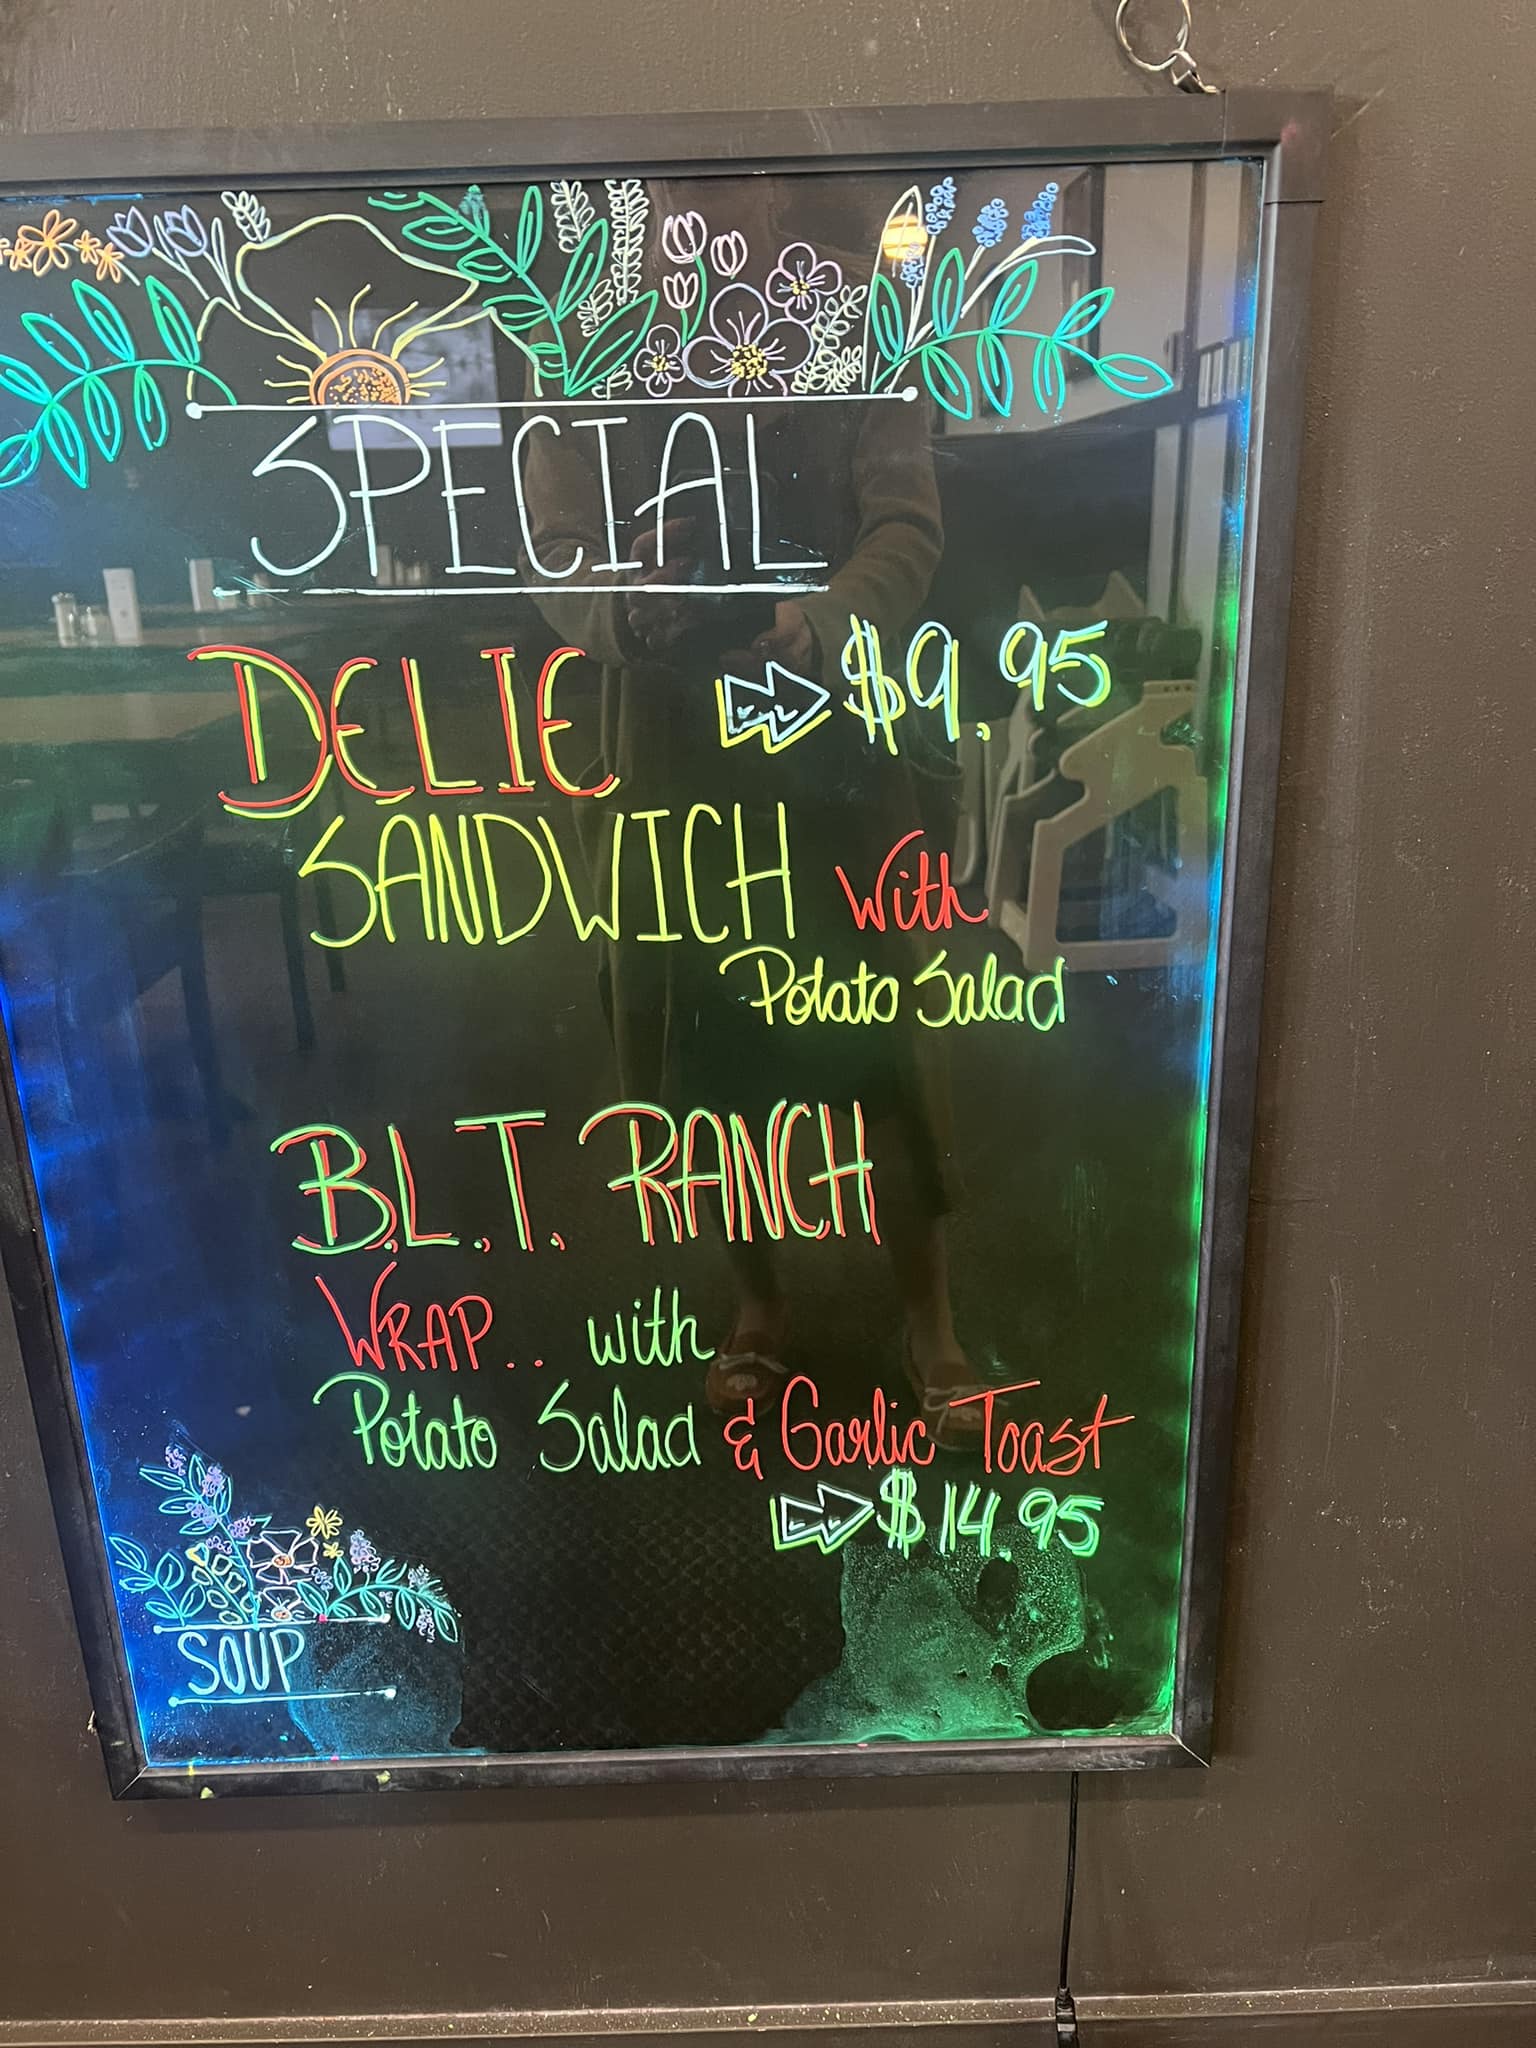 SPECIAL
DELIE $9.95
SANDWICH With
Potato Salad
B.L.T. RANCH
WRAP.. with
Potato Salad & Garlic Toast
$14.95
SOUP